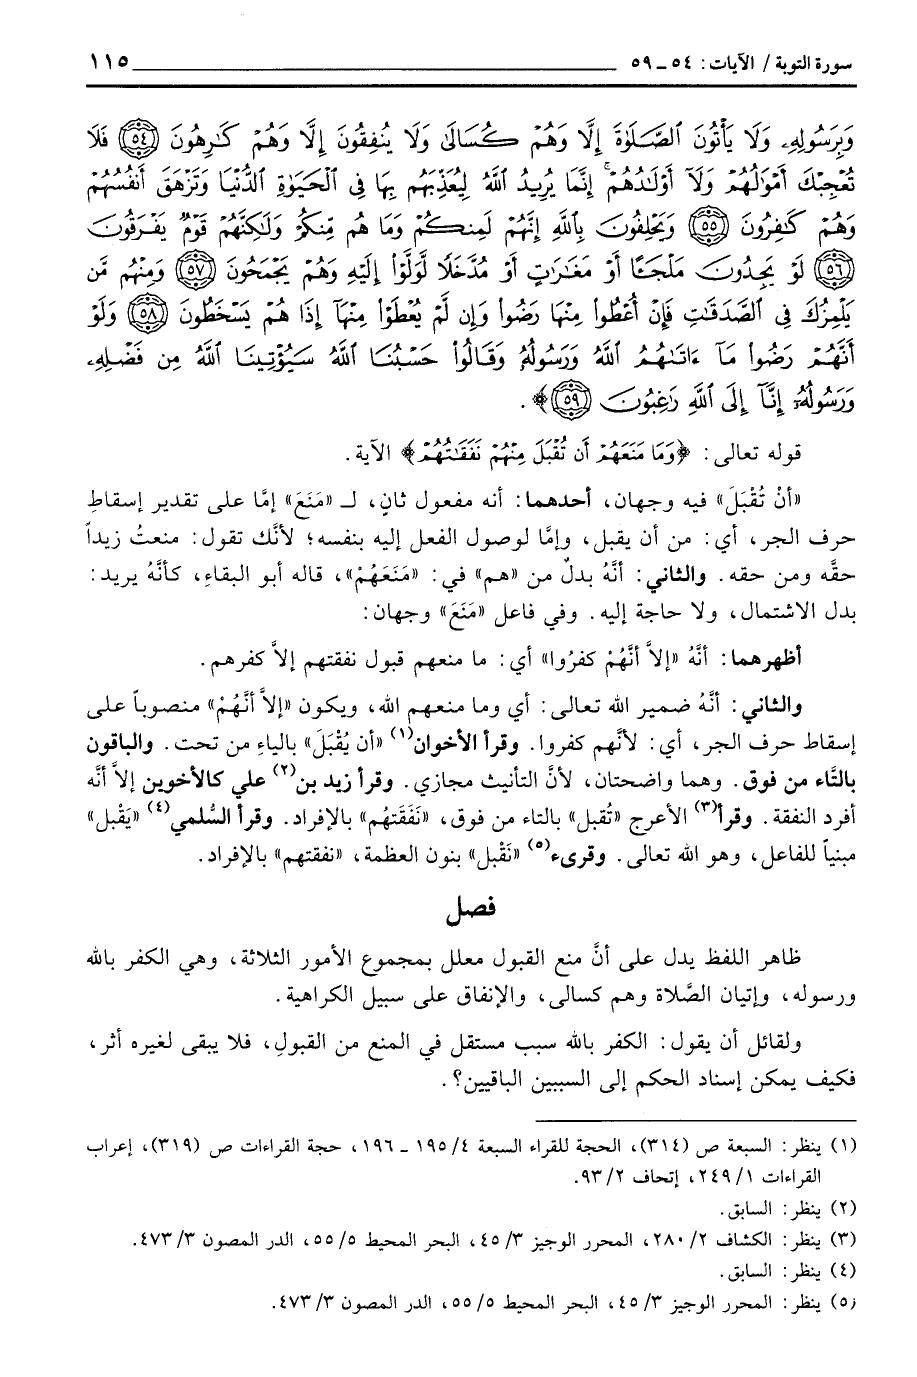 سورة التوبة / الآيات: ٥٤ ـ ٥٩ ١١٥
وَبِرَسُولِهِۦ وَلَا يَأْتُونَ ٱلصَّلَوٰةَ إِلَّا وَهُمْ كُسَالَىٰ وَلَا يُنفِقُونَ إِلَّا وَهُمْ كَـٰرِهُونَ ﴿٥٤﴾ فَلَا
تُعْجِبْكَ أَمْوَٰلُهُمْ وَلَآ أَوْلَـٰدُهُمْ ۚ إِنَّمَا يُرِيدُ ٱللَّهُ لِيُعَذِّبَهُم بِهَا فِى ٱلْحَيَوٰةِ ٱلدُّنْيَا وَتَزْهَقَ أَنفُسُهُمْ
وَهُمْ كَـٰفِرُونَ ﴿٥٥﴾ وَيَحْلِفُونَ بِٱللَّهِ إِنَّهُمْ لَمِنكُمْ وَمَا هُم مِّنكُمْ وَلَـٰكِنَّهُمْ قَوْمٌ يَفْرَقُونَ
﴿٥٦﴾ لَوْ يَجِدُونَ مَلْجَـًٔا أَوْ مَغَـٰرَٰتٍ أَوْ مُدَّخَلًا لَّوَلَّوْا۟ إِلَيْهِ وَهُمْ يَجْمَحُونَ ﴿٥٧﴾ وَمِنْهُم مَّن
يَلْمِزُكَ فِى ٱلصَّدَقَـٰتِ فَإِنْ أُعْطُوا۟ مِنْهَا رَضُوا۟ وَإِن لَّمْ يُعْطَوْا۟ مِنْهَآ إِذَا هُمْ يَسْخَطُونَ ﴿٥٨﴾ وَلَوْ
أَنَّهُمْ رَضُوا۟ مَآ ءَاتَىٰهُمُ ٱللَّهُ وَرَسُولُهُۥ وَقَالُوا۟ حَسْبُنَا ٱللَّهُ سَيُؤْتِينَا ٱللَّهُ مِن فَضْلِهِۦ
وَرَسُولُهُۥٓ إِنَّآ إِلَى ٱللَّهِ رَٰغِبُونَ ﴿٥٩﴾﴾.
قوله تعالى: ﴿وَمَا مَنَعَهُمْ أَن تُقْبَلَ مِنْهُمْ نَفَقَـٰتُهُمْ﴾ الآية.
«أنْ تُقْبَلَ» فيه وجهان، أحدهما: أنه مفعول ثانٍ، لـ «مَنَعَ» إمَّا على تقدير إسقاطِ
حرف الجر، أي: من أن يقبل، وإمَّا لوصول الفعل إليه بنفسه؛ لأنَّك تقول: منعتُ زيداً
حقَّه ومن حقه. والثاني: أنَّهُ بدلٌ من «هم» في: «مَنَعَهُمْ»، قاله أبو البقاءِ، كأنَّهُ يريد:
بدل الاشتمال، ولا حاجة إليه. وفي فاعل «مَنَعَ» وجهان:
أظهرهما: أنَّهُ «إلاَّ أنَّهُمْ كفرُوا» أي: ما منعهم قبول نفقتهم إلاَّ كفرهم.
والثاني: أنَّهُ ضمير الله تعالى: أي وما منعهم الله، ويكون «إلاَّ أنَّهُمْ» منصوباً على
إسقاط حرف الجر، أي: لأنَّهم كفروا. وقرأ الأخوان(١) «أن يُقْبَلَ» بالياءِ من تحت. والباقون
بالتَّاء من فوق. وهما واضحتان، لأنَّ التأنيث مجازي. وقرأ زيد بن(٢) علي كالأخوين إلاَّ أنَّه
أفرد النفقة. وقرأ(٣) الأعرج «تُقبل» بالتاء من فوق، «نَفَقَتهُم» بالإفراد. وقرأ السُّلمي(٤) «يَقْبل»
مبنياً للفاعل، وهو الله تعالى. وقرىء(٥) «نَقْبل» بنون العظمة، «نفقتهم» بالإفراد.
فصل
ظاهر اللفظ يدل على أنَّ منع القبول معلل بمجموع الأمور الثلاثة، وهي الكفر بالله
ورسوله، وإتيان الصَّلاة وهم كسالى، والإنفاق على سبيل الكراهية.
ولقائل أن يقول: الكفر بالله سبب مستقل في المنع من القبولِ، فلا يبقى لغيره أثر،
فكيف يمكن إسناد الحكم إلى السببين الباقيين؟.
(١) ينظر: السبعة ص (٣١٤)، الحجة للقراء السبعة ٤/ ١٩٥ ـ ١٩٦، حجة القراءات ص (٣١٩)، إعراب
القراءات ١/ ٢٤٩، إتحاف ٢/ ٩٣.
(٢) ينظر: السابق.
(٣) ينظر: الكشاف ٢/ ٢٨٠، المحرر الوجيز ٣/ ٤٥، البحر المحيط ٥/ ٥٥، الدر المصون ٣/ ٤٧٣.
(٤) ينظر: السابق.
(٥) ينظر: المحرر الوجيز ٣/ ٤٥، البحر المحيط ٥/ ٥٥، الدر المصون ٣/ ٤٧٣.